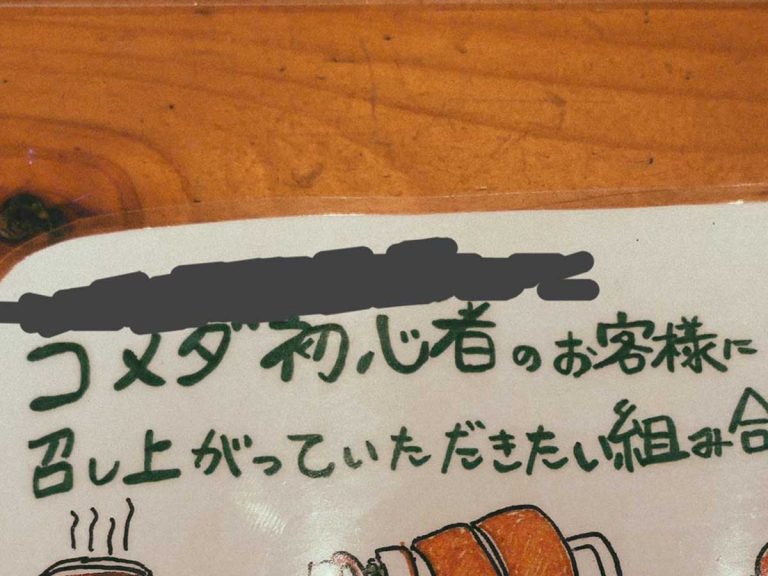 コメダ初心者のお客様に
召し上がっていただきたい組み合